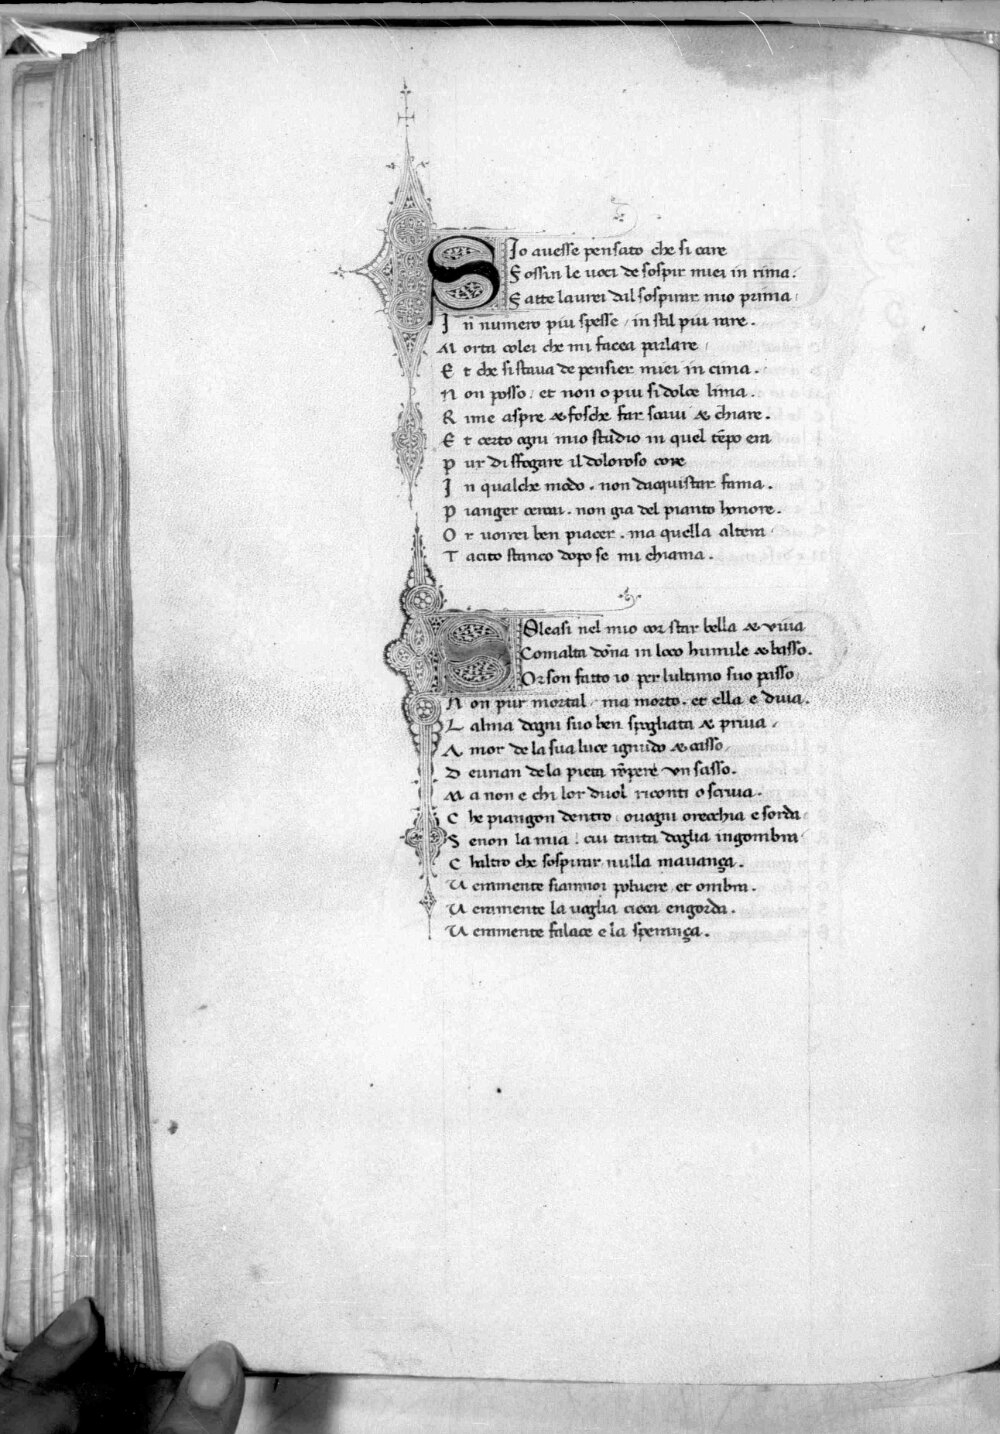 S Io auesse pensato che si care
Fossin le uoci de sospir miei in rima.
Fatte laurei dal sospirar mio prima
In numero piu spesse / in stil piu rare.
Morta colei che mi facea parlare
Et che si staua de pensier miei in cima.
Non posso. et non o piu si dolce lima.
Rime aspre & fosche far soaui & chiare.
Et certo ogni mio studio in quel tēpo era
Pur di sfogare il doloroso core
In qualche modo. non dacquistar fama.
Pianger cercai. non gia del pianto honore.
Or uorrei ben piacer. ma quella altera
Tacito stanco dopo se mi chiama.
SOleasi nel mio cor star bella & viua
Comalta dōna in loco humile & basso.
Or son fatto io per lultimo suo passo
Non pur mortal / ma morto. et ella e diua.
Lalma dogni suo ben spogliata & priua
Amor de la sua luce ignudo & casso
Deurian de la pieta rōpere vn sasso.
Ma non e chi lor duol riconti o scriua.
Che piangon dentro. ouogni orecchia e sorda
Senon la mia. cui tanta doglia ingombra
Chaltro che sospirar nulla mauança.
Veramente siam noi poluere et ombra.
Veramente la uoglia cieca engorda.
Veramente falace e la sperança.